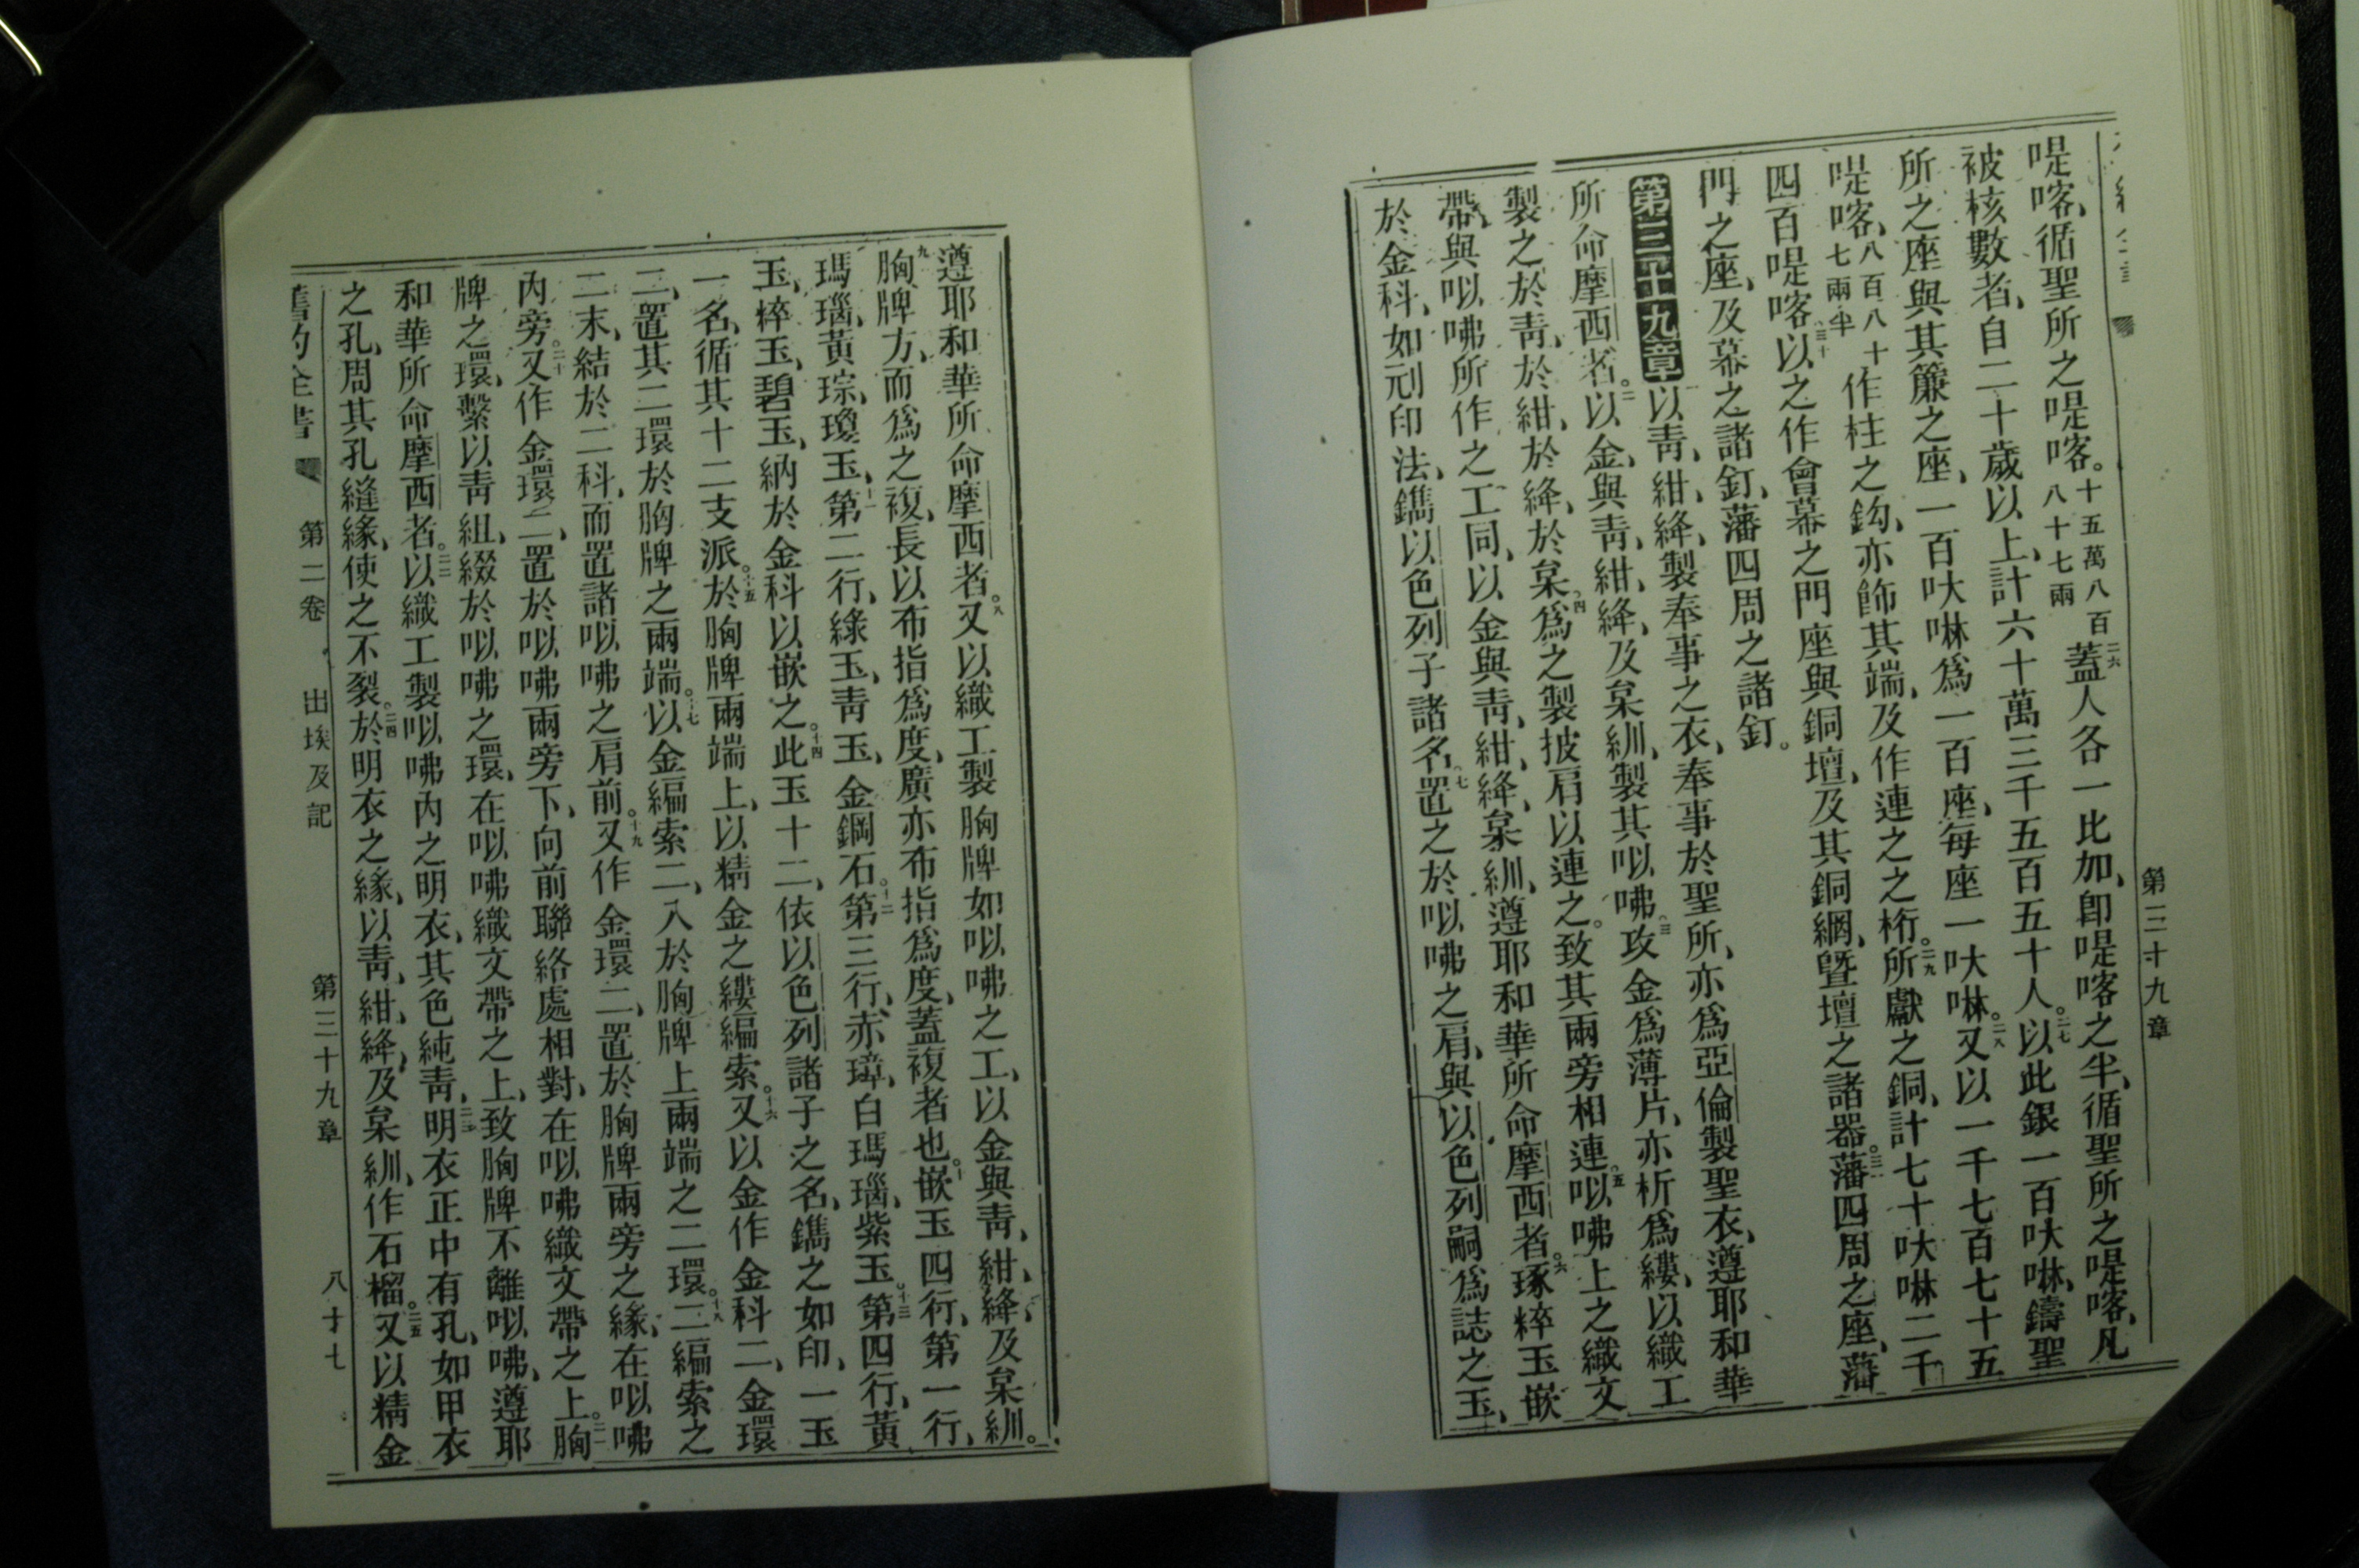 第三十九章
喋喀、循聖所之喋喀。十五萬八百八十七兩二六蓋人各一比加、卽喋喀之半、循聖所之喋喀、凡
被核數者、自二十歲以上、計六十萬三千五百五十人。二七以此銀一百呔啉、鑄聖
所之座與其簾之座、一百呔啉爲一百座、每座一呔啉。二八又以一千七百七十五
喋喀、八百八十七兩半作柱之鈎、亦飾其端、及作連之之桁。二九所獻之銅、計七十呔啉二千
四百喋喀。三十以之作會幕之門座與銅壇、及其銅網、曁壇之諸器。三一藩四周之座、藩
門之座、及幕之諸釘、藩四周之諸釘。
第三十九章以靑、紺、絳、製奉事之衣、奉事於聖所、亦爲亞倫製聖衣、遵耶和華
所命摩西者。二以金、與靑、紺、絳、及枲紃、製其㕥咈。三攻金爲薄片、亦析爲縷、以織工
製之於靑、於紺、於絳、於枲。四爲之製披肩以連之。致其兩旁相連。五㕥咈上之織文
帶、與㕥咈所作之工同、以金與靑、紺、絳、枲紃、遵耶和華所命摩西者。六琢粹玉嵌
於金科、如刓印法、鐫以色列子諸名。七置之於㕥咈之肩、與以色列嗣爲誌之玉、
遵耶和華所命摩西者。八又以織工製胸牌如㕥咈之工、以金與靑、紺、絳、及枲紃。
九胸牌方、而爲之複、長以布指爲度、廣亦布指爲度、蓋複者也。十嵌玉四行、第一行、
瑪瑙、黃琮、瓊玉、十一第二行、綠玉、靑玉、金鋼石。十二第三行、赤璋、白瑪瑙、紫玉。十三第四行、黃
玉、粹玉、碧玉、納於金科以嵌之。十四此玉十二、依以色列諸子之名、鐫之如印、一玉
一名、循其十二支派。十五於胸牌兩端上、以精金之縷編索。十六又以金作金科二、金環
二、置其二環於胸牌之兩端。十七以金編索二、入於胸牌上兩端之二環。十八二編索之
二末、結於二科、而置諸㕥咈之肩前。十九又作金環二、置於胸牌兩旁之緣、在㕥咈
內旁。二十又作金環二、置於㕥咈兩旁下、向前聯絡處相對、在㕥咈織文帶之上。二一胸
牌之環、繫以靑組、綴於㕥咈之環、在㕥咈織文帶之上、致胸牌不離㕥咈、遵耶
和華所命摩西者。二二以織工製㕥咈內之明衣、其色純靑、二三明衣正中有孔、如甲衣
之孔、周其孔縫緣、使之不裂。二四於明衣之緣、以靑、紺、絳、及枲紃、作石榴。二五又以精金
舊約全書 第二卷 出埃及記 第三十九章 八十七